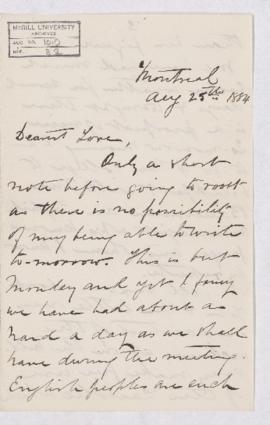 McGILL UNIVERSITY
ARCHIVES
ACC. NO. 1010
REF. 32
Montreal
Aug 25th 1884
Dearest Love,
Only a short
note before going to roost
as there is no possibility
of my being able to write
to-morrow. This is but
Monday and yet I fancy
we have had about as
hard a day as we shall
have during the meeting.
English peoples are such